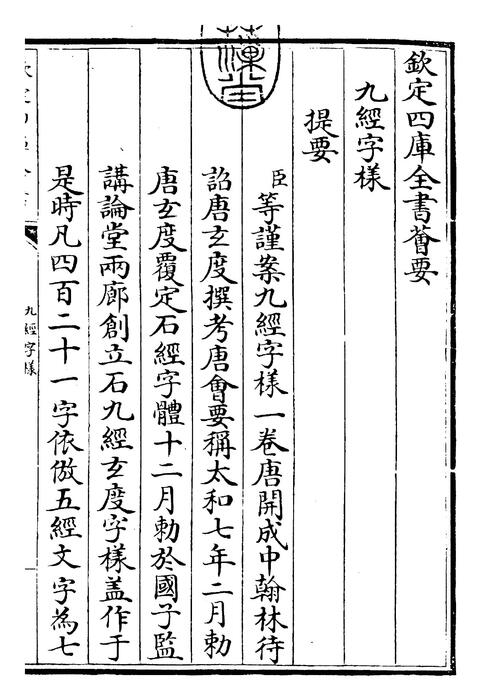 欽定四庫全書薈要
九經字樣
提要
臣等謹案九經字樣一卷唐開成中翰林待
詔唐玄度撰考唐會要稱太和七年二月勅
唐玄度覆定石經字體十二月勅於國子監
講論堂兩廊創立石九經玄度字樣蓋作于
是時凡四百二十一字依倣五經文字為七
九經字樣